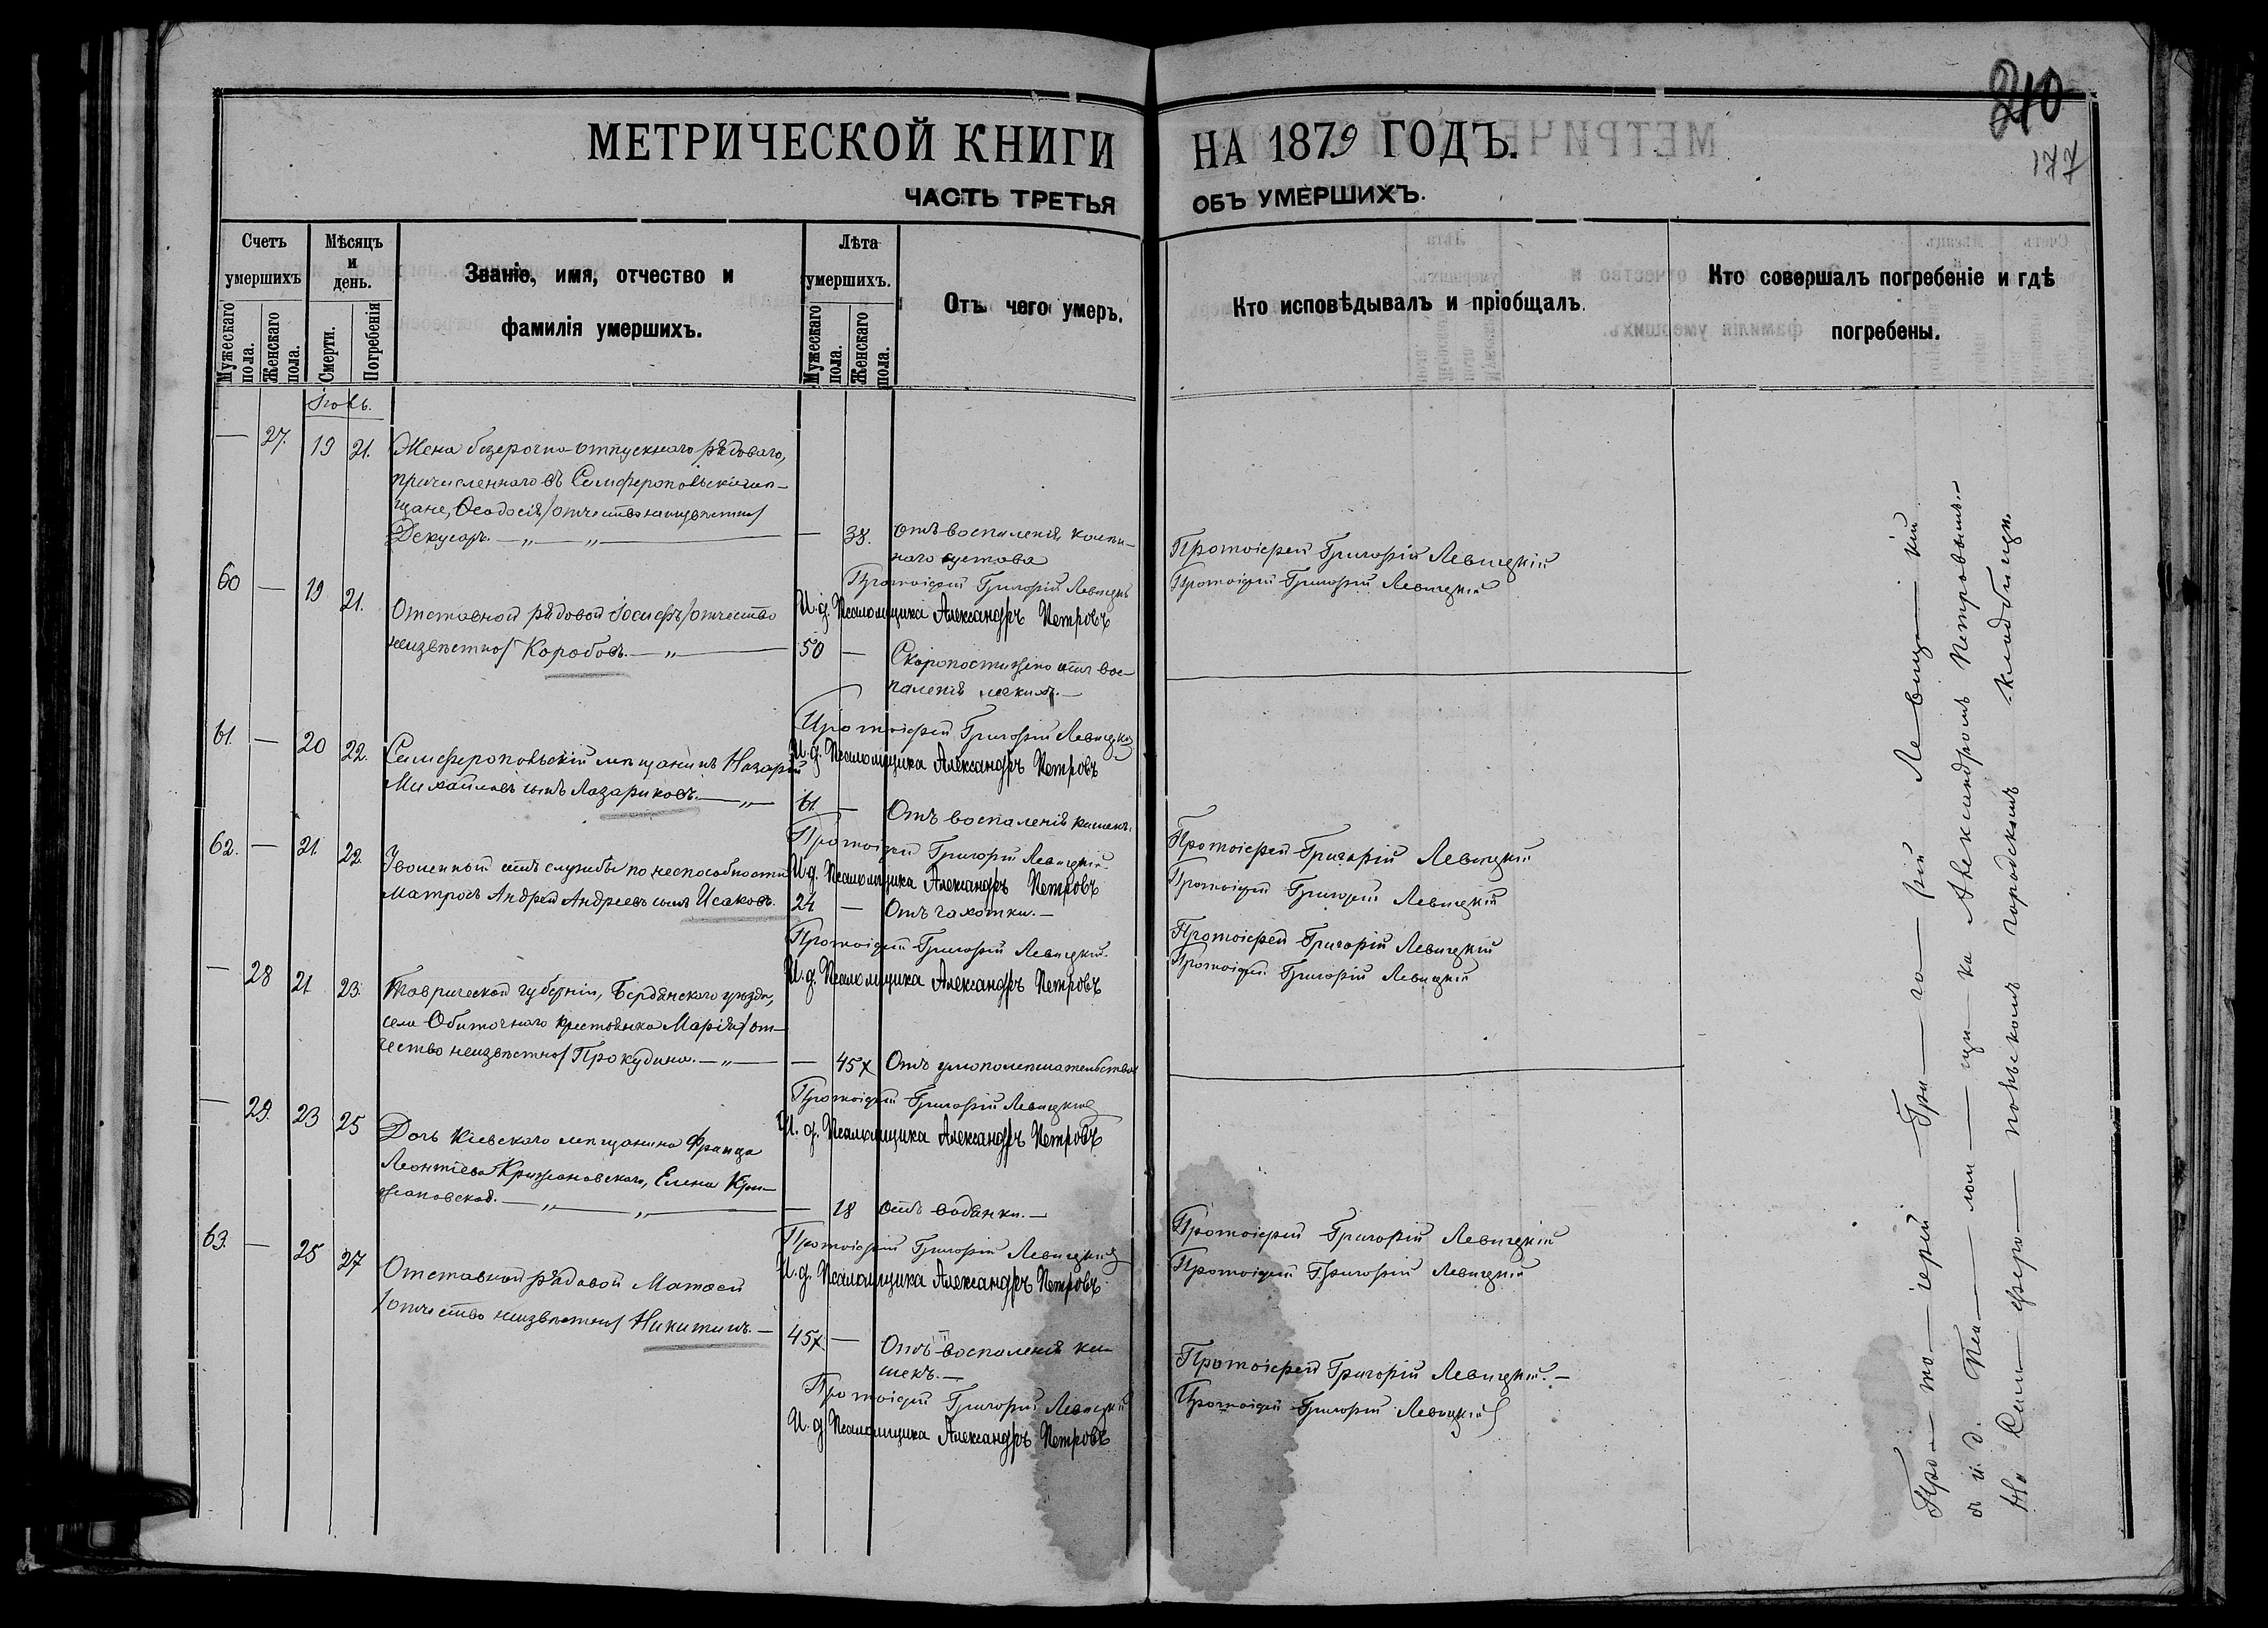 210
177
МЕТРИЧЕСКОЙ КНИГИ НА 1879 ГОДЪ.
ЧАСТЬ ТРЕТЬЯ ОБЪ УМЕРШИХЪ.
Счетъ умершихъ
Мужескаго пола.
Женскаго пола.
Мѣсяцъ и день.
Смерти.
Погребенія
Званіе, имя, отчество и
фамилія умершихъ.
Лѣта умершихъ.
Мужескаго пола.
Женскаго пола.
Отъ чего умеръ.
Кто исповѣдывалъ и пріобщалъ.
Кто совершалъ погребеніе и гдѣ
погребены.
— 27. 19 21. Жена безсрочно-отпускнаго рядоваго,
причисленнаго въ Симферопольскіе мѣ-
щане, Ѳеодосія /отчество неизвѣстно/
Декусаръ. — „ — „ — — 38. отъ воспаленія колѣн-
наго сустава
Протоіерей Григорій Левицкій
Протоіерей Григорій Левицкій
Протоіерей Григорій Левицкій
И. д. Псаломщика Александръ Петровъ
60 — 19 21. Отставной рядовой Іосифъ /отчество
неизвѣстно/ Коробовъ. — „ — 50 — Скоропостижно отъ вос-
паленія легкихъ. —
Протоіерей Григорій Левицкій
И. д. Псаломщика Александръ Петровъ
61. — 20 22. Симферопольскій мѣщанинъ Назарій
Михайловъ сынъ Лазариковъ. — „ — 61 — Отъ воспаленія кишекъ.
Протоіерей Григорій Левицкій
Протоіерей Григорій Левицкій
Протоіерей Григорій Левицкій
И. д. Псаломщика Александръ Петровъ
62. — 21. 22. Уволенный отъ службы по неспособности
матросъ Андрей Андреевъ сынъ Исаковъ. 24 — Отъ чахотки. —
Протоіерей Григорій Левицкій
Протоіерей Григорій Левицкій
Протоіерей Григорій Левицкій.
И. д. Псаломщика Александръ Петровъ
— 28 21 23. Таврической губерніи, Бердянскаго уѣзда,
села Обиточнаго крестьянка Марія /от-
чество неизвѣстно/ Прокудина. — „ — — 45 Отъ умопомѣшательства
Протоіерей Григорій Левицкій
И. д. Псаломщика Александръ Петровъ
— 29. 23 25 Дочь Кіевскаго мѣщанина Франца
Леонтіева Крижановскаго, Елена Кри-
жановская. — „ — „ — — 18 отъ водянки. —
Протоіерей Григорій Левицкій
Протоіерей Григорій Левицкій
Протоіерей Григорій Левицкій
И. д. Псаломщика Александръ Петровъ
63. — 25 27 Отставной рядовой Матѳей
/отчество неизвѣстно/ Никитинъ. — 45 — Отъ воспаленія ки-
шекъ. —
Протоіерей Григорій Левицкій. —
Протоіерей Григорій Левицкій
Протоіерей Григорій Левицкій
И. д. Псаломщика Александръ Петровъ
Про — то — іерей Гри — го — рій Левиц — кій
съ и. д. Пса — лом — щи — ка Александромъ Петровымъ. —
На Сим — феро — польскомъ городскомъ кладбищѣ.